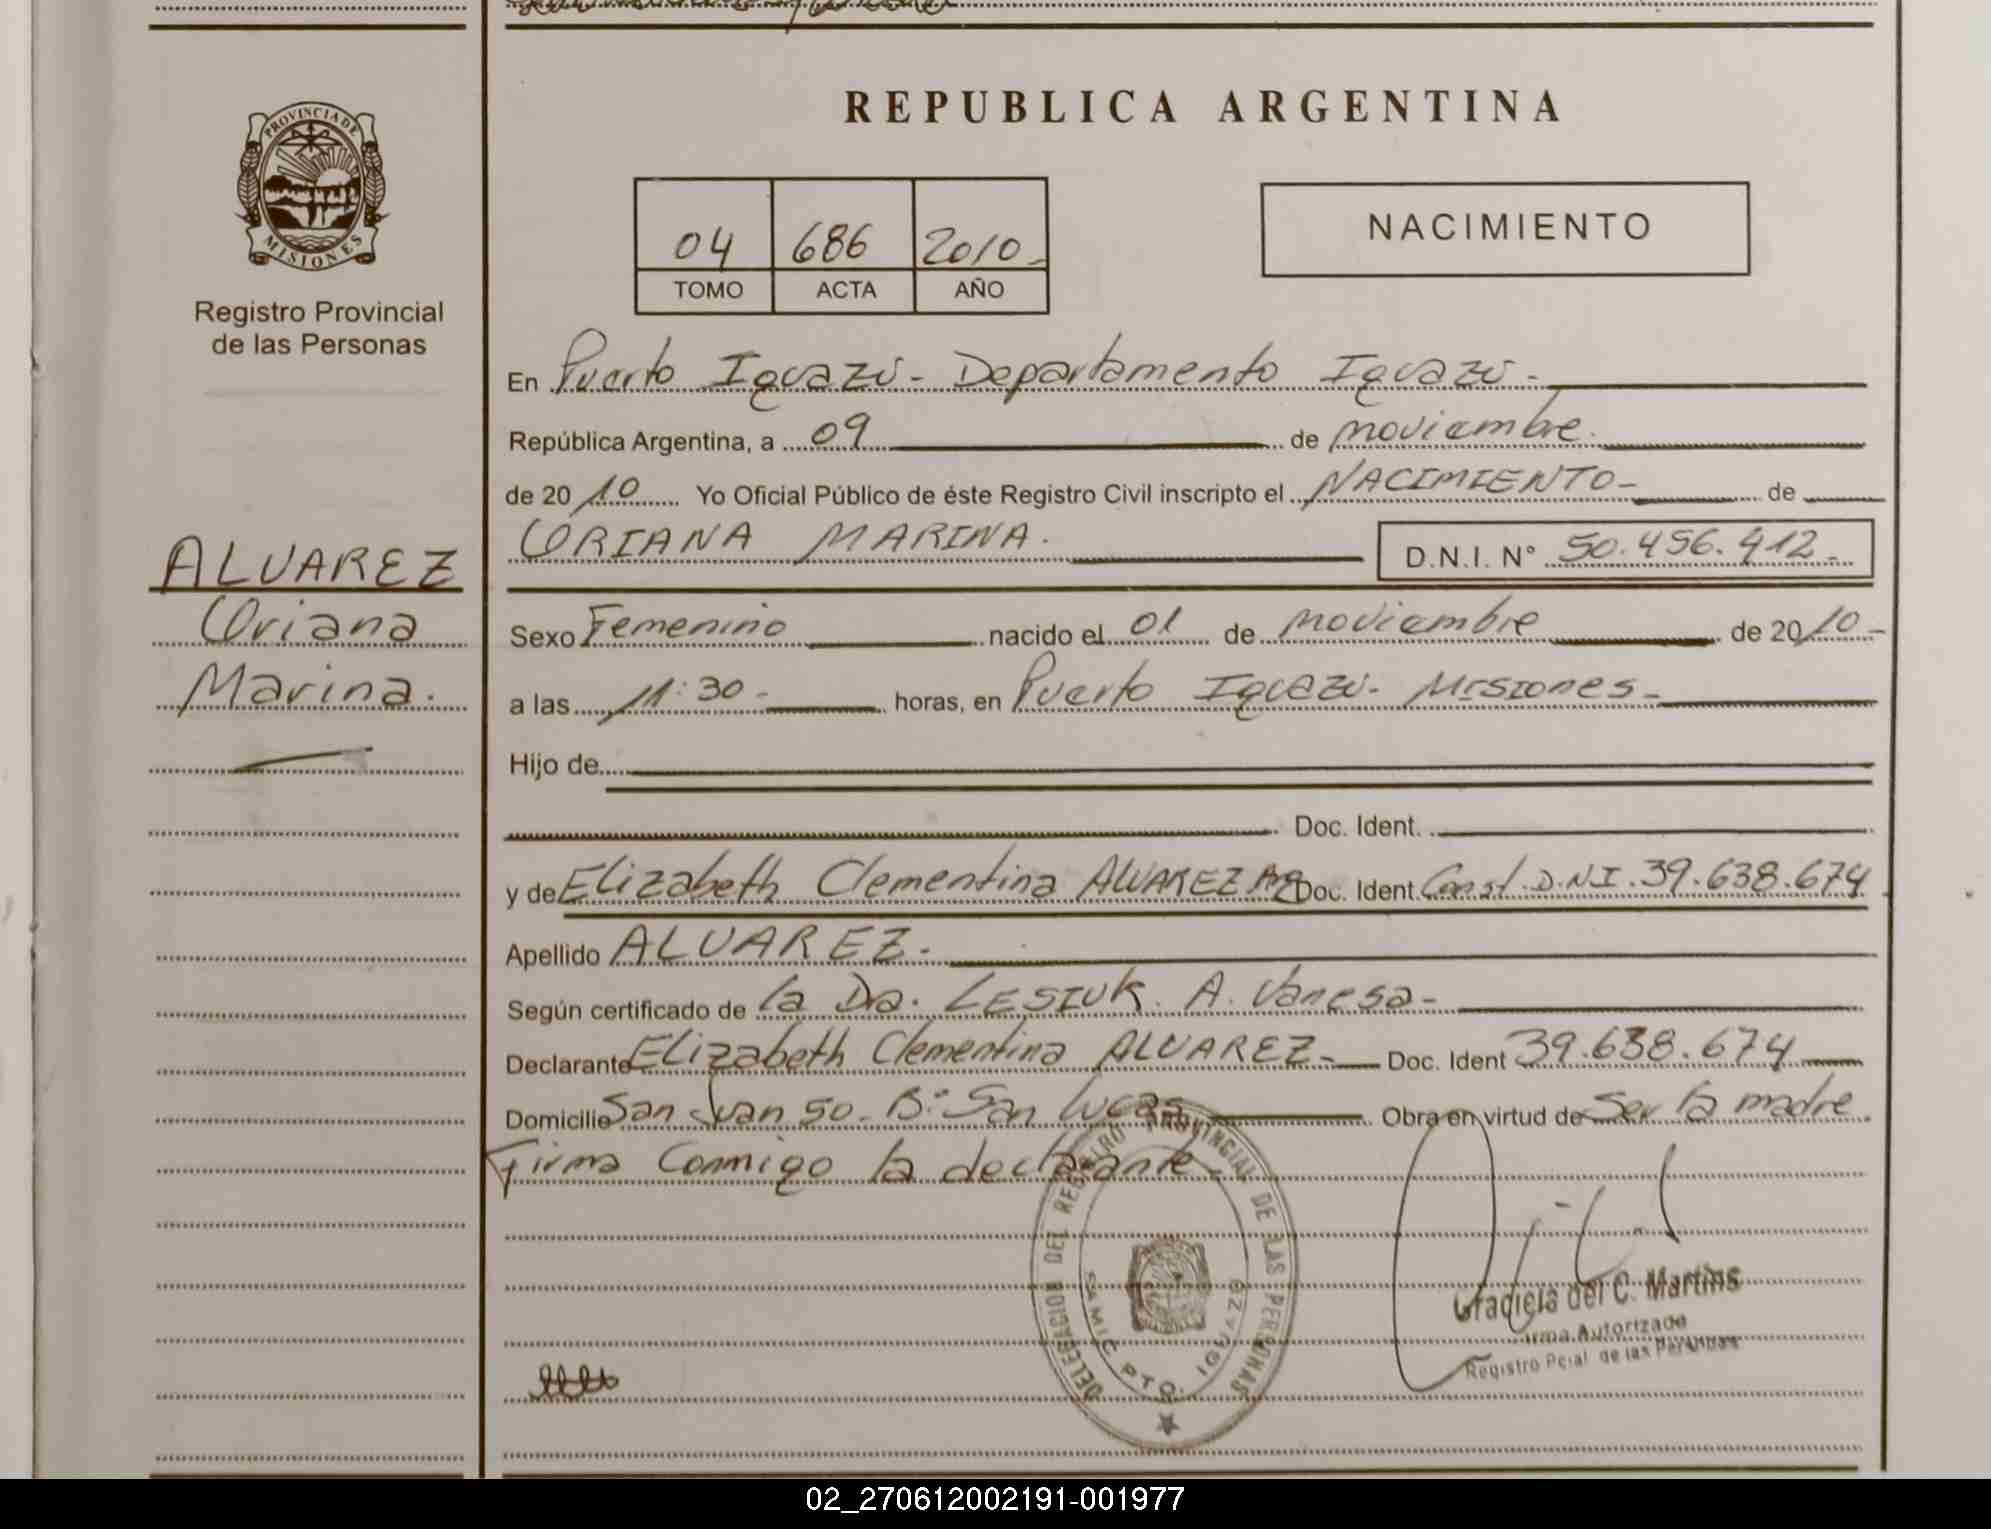 REPUBLICA ARGENTINA
PROVINCIA DE
MISIONES
Registro Provincial
de las Personas
04 686 2010-
TOMO ACTA AÑO
NACIMIENTO
ALVAREZ
Oriana
Marina.
En Puerto Iguazú - Departamento Iguazú -
República Argentina, a 09 de noviembre.
de 20 10 Yo Oficial Público de éste Registro Civil inscripto el NACIMIENTO- de
ORIANA MARINA. D.N.I. N° 50.456.412-
Sexo Femenino nacido el 01 de noviembre de 20 10-
a las 11:30- horas, en Puerto Iguazú- Misiones-
Hijo de
Doc. Ident.
y de Elizabeth Clementina ALVAREZ Arg Doc. Ident. Const. D.N.I. 39.638.674
Apellido ALVAREZ-
Según certificado de la Da. LESIUK. A. Vanesa-
Declarante Elizabeth Clementina ALVAREZ- Doc. Ident 39.638.674
Domicilio San Juan 50- B° San Lucas Obra en virtud de Ser la madre
Firma Conmigo la declarante-
DELEGACION DEL REGISTRO PROVINCIAL DE LAS PERSONAS
SAMIC PTO. IGUAZU
Graciela del C. Martins
Firma Autorizada
Registro Pcial. de las Personas
02_270612002191-001977